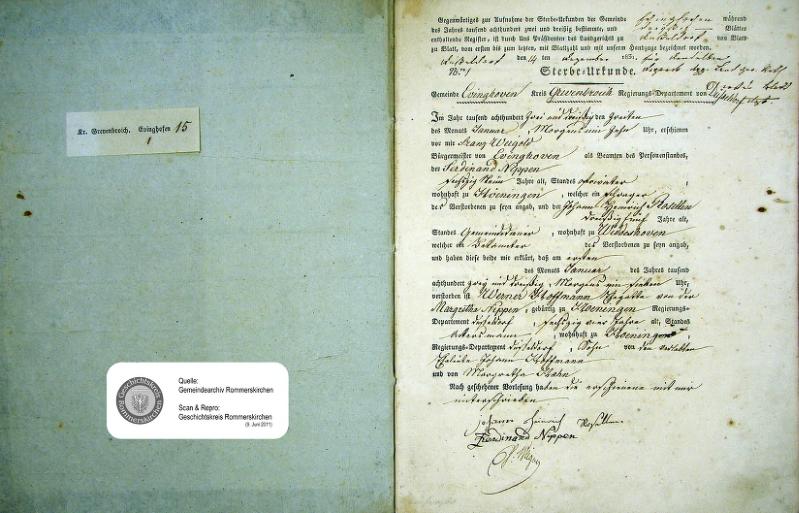 Kr. Grevenbroich. Evinghofen 15
1
Quelle:
Gemeindearchiv Rommerskirchen
Scan & Repro:
Geschichtskreis Rommerskirchen
(9. Juni 2011)
Geschichtskreis
Rommerskirchen
Gegenwärtiges zur Aufnahme der Sterbe-Urkunden der Gemeinde Evinghoven während
des Jahres tausend achthundert zwei und dreißig bestimmte, und
enthaltende Register, ist durch Uns Präsidenten des Landgerichts zu Düsseldorf von Blatt
zu Blatt, vom ersten bis zum letzten, mit Blattzahl und mit unserm Handzuge bezeichnet worden.
Düsseldorf den 14 ten Dezember 1831.
No. 1
Sterbe-Urkunde.
Gemeinde Evinghoven Kreis Grevenbroich Regierungs-Departement von Düsseldorf
Im Jahr tausend achthundert zwei und dreißig den zweiten
des Monats Januar, Morgens um zehn Uhr, erschienen
vor mir Franz Weigold
Bürgermeister von Evinghoven als Beamten des Personenstandes,
der Ferdinand Nippen
sechszig neun Jahre alt, Standes
wohnhaft zu Hoeningen, welcher ein Schwager
des Verstorbenen zu seyn angab, und der Johann Heinrich Rosellen
dreißig fünf Jahre alt,
Standes Gemeindediener, wohnhaft zu Wideshoven
welcher ein Bekannter des Verstorbenen zu seyn angab,
und haben diese beide mir erklärt, daß am ersten
des Monats Januar des Jahres tausend
achthundert zwei und dreißig, Morgens um sieben Uhr,
verstorben ist Werner Hoffmann Ehegatte von der
Margretha Nippen, gebürtig zu Hoeningen Regierungs-
Departement Düsseldorf, sechszig vier Jahre alt, Standes
Ackersmann, wohnhaft zu Hoeningen
Regierungs-Departement Düsseldorf, Sohn von den verlebten
Eheleute Johann Hoffmann
und von Margretha Hahn
Nach geschehener Vorlesung haben die erschienene mit mir
unterschrieben
Johann Heinrich Rosellen
Ferdinand Nippen